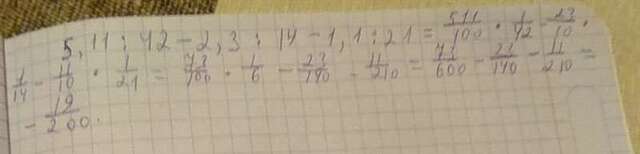 5,11 : 42 - 2,3 : 14 - 1,1 : 21 = 511/100 · 1/42 - 23/10 ·
1/14 - 11/10 · 1/21 = 73/100 · 1/6 - 23/140 - 11/210 = 73/600 - 23/140 - 11/210 =
- 19/200.